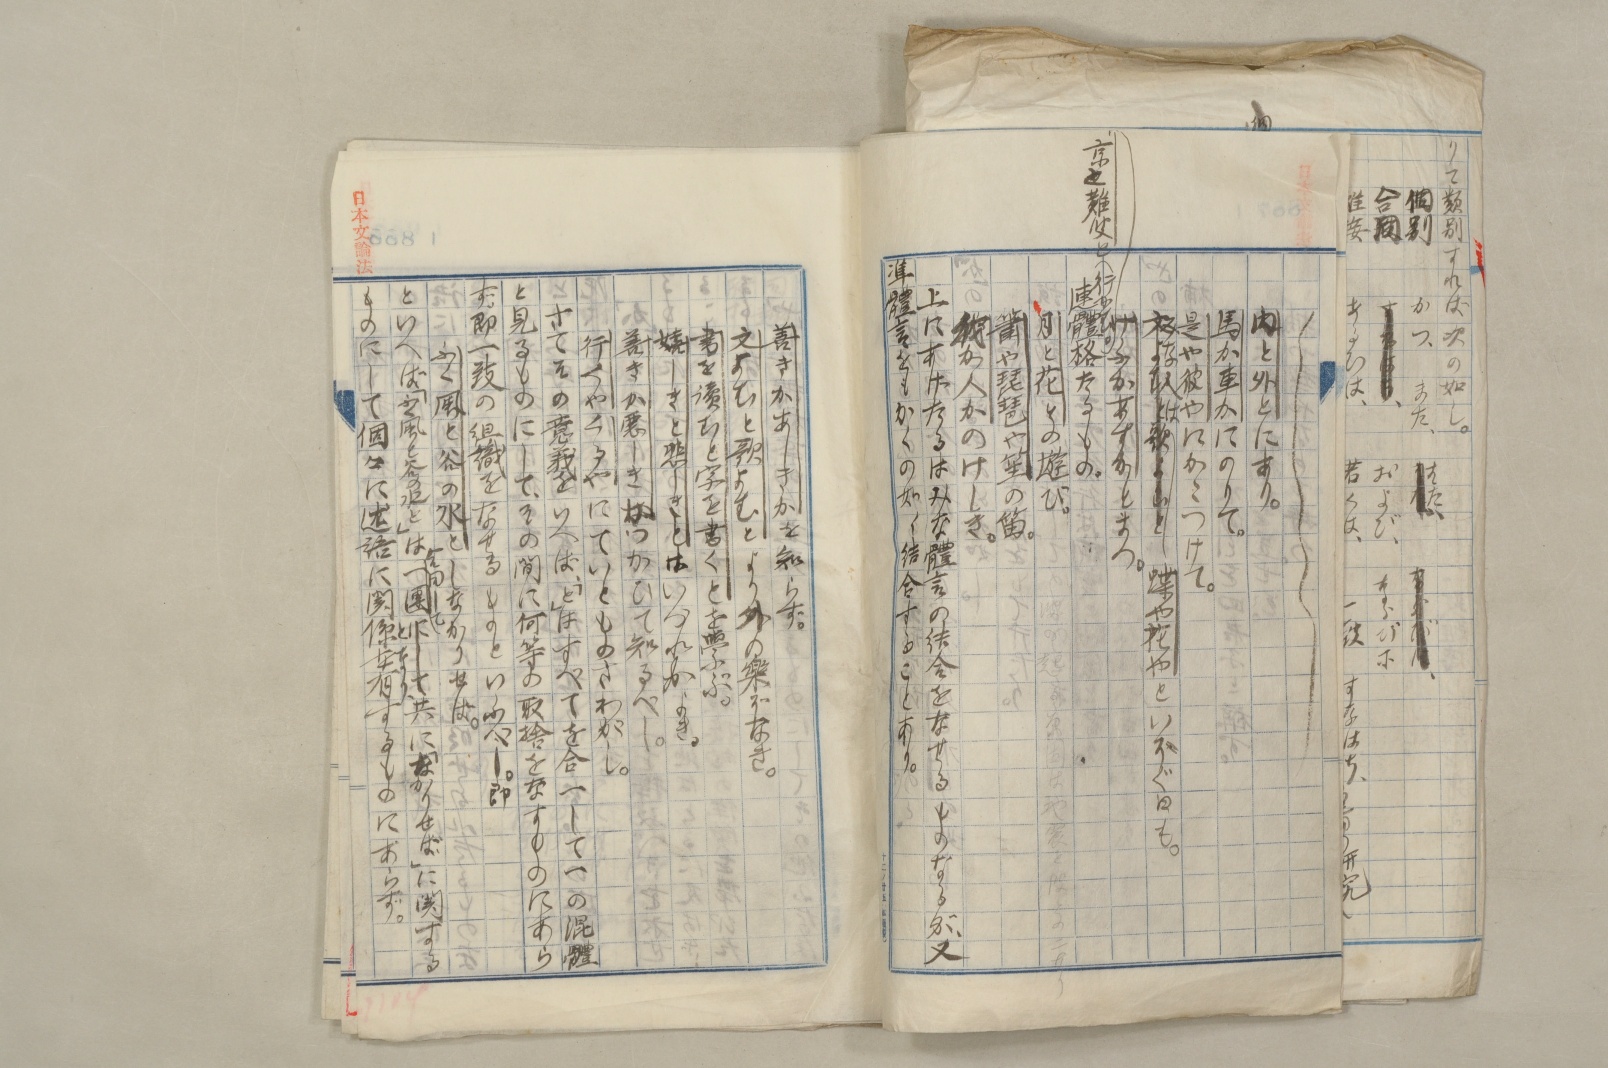 りて類別すれば次の如し。
個別 かつ、また、はた、
合同 および、ならびに
若くは、
すなはち、
京や難波や
内と外とにあり。
馬か車かにのりて。
是や彼やにかこつけて。
蝶や花やといそぐ日も。
けふかあすかとまつ。
連體格たるもの。
月と花との遊び。
簫や琵琶や笙の笛。
我か人かのけしき。
上にあげたるはみな體言の結合をなせるものなるが、又
準體言をもかくの如く結合することあり。
日本文論法
善きかあしきかを知らず。
文よむと歌よむとより外の樂ぞなき。
書を讀むと字を書くとを學ぶ。
嬉しきと悲しきとはいづれかよき。
善きか惡しきかはつかひて知るべし。
行くや くるやにていとものさわがし。
さてその意義をいへば、「と」はすべてを合一して一の混體
と見るものにして、その間に何等の取捨をなすものにあら
ず、即一致の組織をなせるものといふべし。即
ふく風と谷の水としなかりせば。
といへば「ふく風と谷の水と」は一團として共に「なかりせば」に關する
ものにして個々に述語に關係を有するものにあらず。